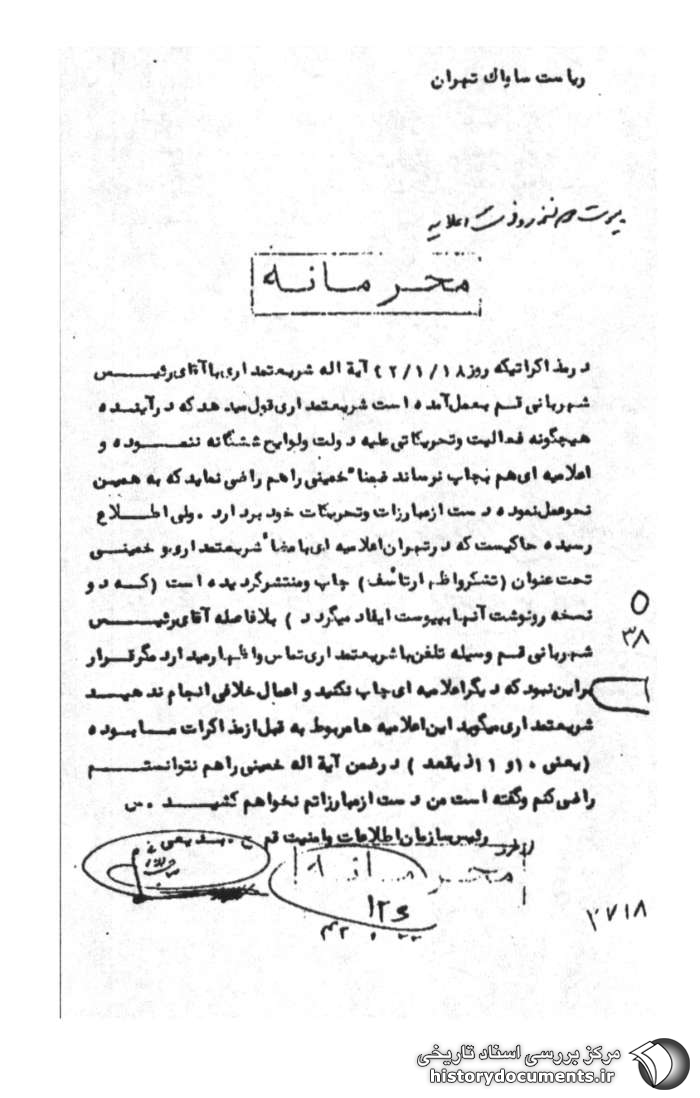 ریاست ساواک تهران
پیوست دو نسخه رونوشت اعلامیه
محرمانه
در مذاکراتیکه روز ۴۲/۱/۱۸ آیة اله شریعتمداری با آقای رئیس
شهربانی قم بعمل آمده است شریعتمداری قول میدهد که در آینده
هیچگونه فعالیت و تحریکاتی علیه دولت و لوایح ششگانه ننموده و
اعلامیه ای هم بچاپ نرساند ضمنا" خمینی را هم راضی نماید که به همین
نحو عمل نموده دست از مبارزات و تحریکات خود بردارد . ولی اطلاع
رسیده حاکیست که در تهران اعلامیه ای بامضاء شریعتمداری و خمینی
تحت عنوان (تشکر و اظهار تأسف) چاپ و منتشر گردیده است (که دو
نسخه رونوشت آنها بپیوست ایفاد میگردد) بلافاصله آقای رئیس
شهربانی قم وسیله تلفن با شریعتمداری تماس و اظهار میدارد مگر قرار
بر این نبود که دیگر اعلامیه ای چاپ نکنید و اعمال خلافی انجام ندهید
شریعتمداری میگوید این اعلامیه ها مربوط به قبل از مذاکرات ما بوده
(یعنی ۱۰ و ۱۱ ذیقعد) در ضمن آیة اله خمینی را هم نتوانستم
راضی کنم و گفته است من دست از مبارزاتم نخواهم کشید . س
رئیس سازمان اطلاعات و امنیت قم . بدیعی
محرمانه
۵
۳۸
۱۲۶
۲۷۱۸
مرکز بررسی اسناد تاریخی
historydocuments.ir